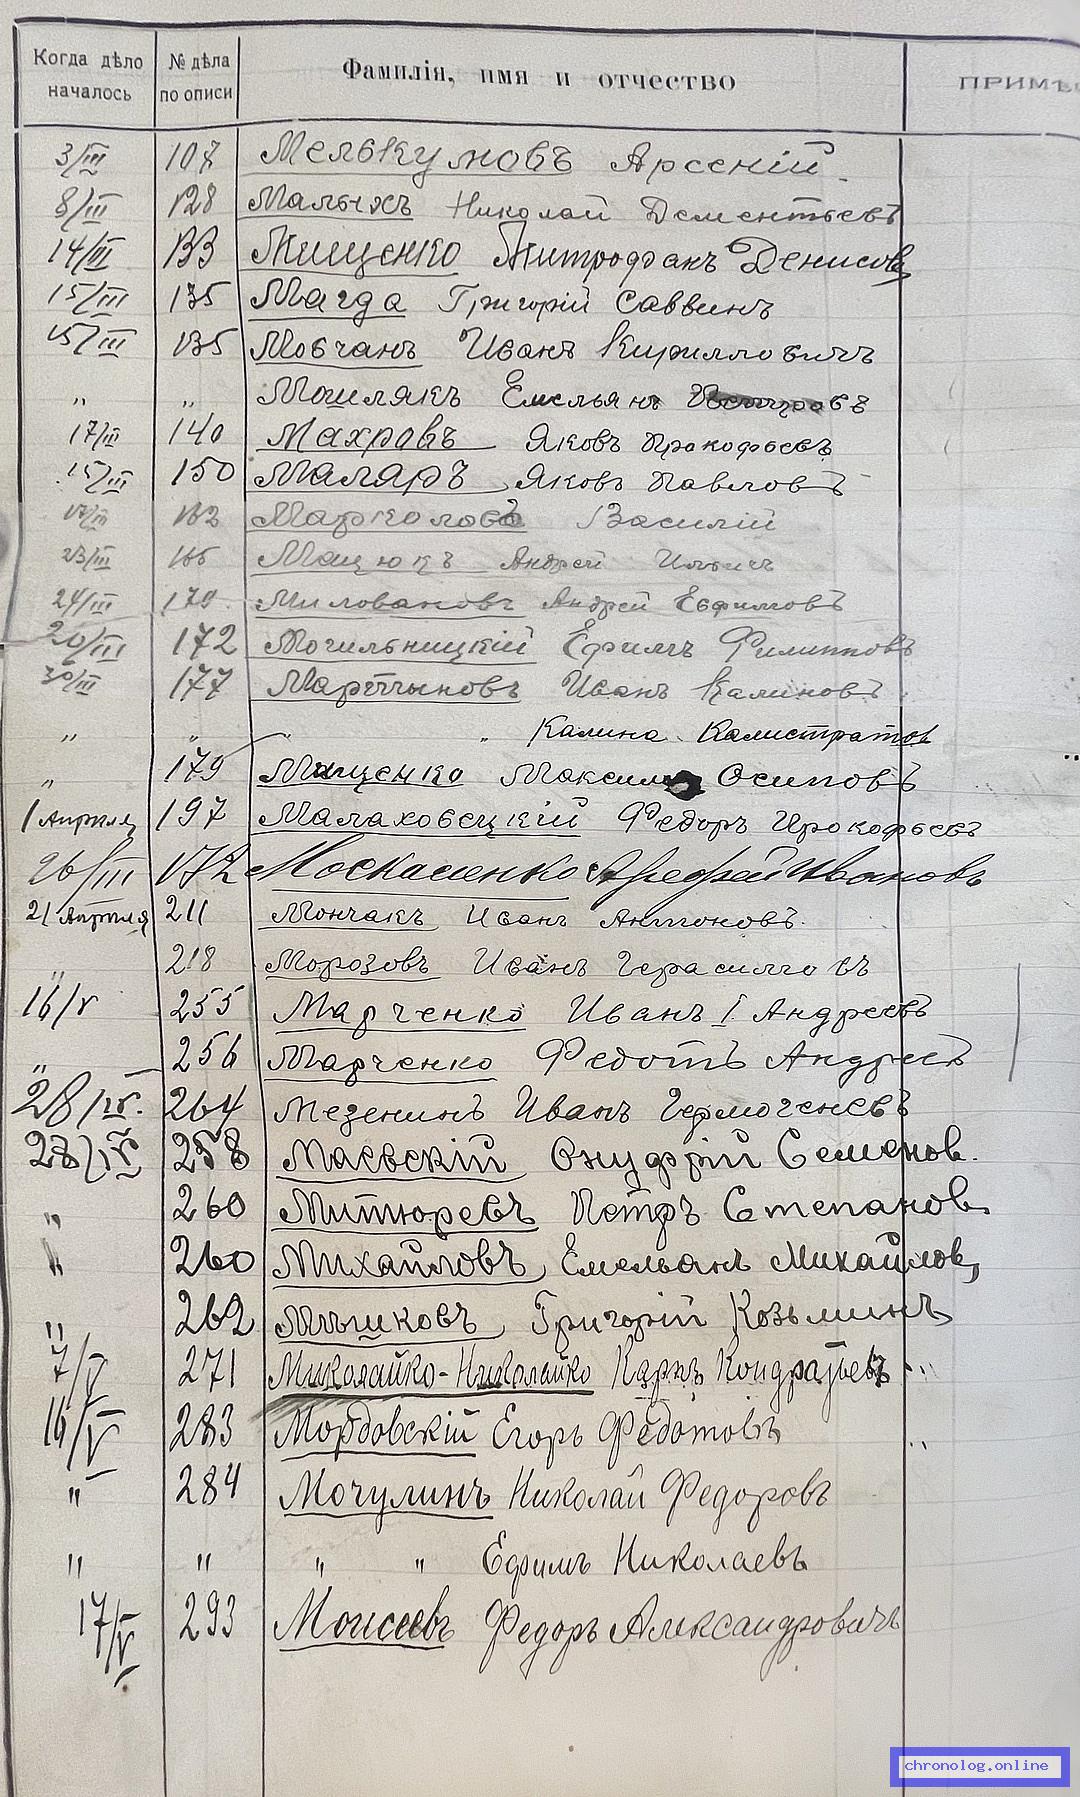 Когда дѣло началось № дѣла по описи Фамилія, имя и отчество
3/III 107 Мелькумовъ Арсеній.
8/III 128 Малыхъ Николай Дементьевъ
14/III 133 Мищенко Митрофанъ Денисовъ
15/III 135 Магда Григорій Саввинъ
15/III 135 Мовчанъ Иванъ Кирилловичъ
" " Мошлякъ Емельянъ
17/III 140 Махровъ Яковъ Прокофьевъ
15/III 150 Маляръ Яковъ Павловъ
17/III 162 Василій
23/III 166 Мацюкъ Андрей Ильичъ
24/III 170 Миловановъ Андрей Евфимовъ
26/III 172 Могильницкій Ефимъ Филипповъ
30/III 177 Мартыновъ Иванъ Калиновъ
" " " " Калина Калистратов
" 179 Мищенко Максимъ Осиповъ
1 Апрѣля 197 Малаховецкій Федоръ Прокофьевъ
26/III 172 Москаленко Арефій Ивановъ
21 Апрѣля 211 Мончакъ Иванъ Антоновъ.
" 218 Морозовъ Иванъ Герасимовъ
16/V 255 Марченко Иванъ I. Андреевъ
" 256 Марченко Федотъ Андреевъ
28/IV. 264 Мезенинъ Иванъ Гермогеневъ
28/IV 258 Маевскій Онуфрій Семенов.
" 260 Митюревъ Петръ Степанов.
" 260 Михайловъ Емельянъ Михайлов,
" 262 Мышковъ Григорій Козьминъ
7/V 271 Миколайко-Николайко Карпъ Кондратьевъ
16/V 283 Мордовскій Егоръ Федотовъ
" 284 Мочулинъ Николай Федоровъ
" " " " Ефимъ Николаевъ
17/V 293 Моисеевъ Федоръ Александровичъ
chronolog.online